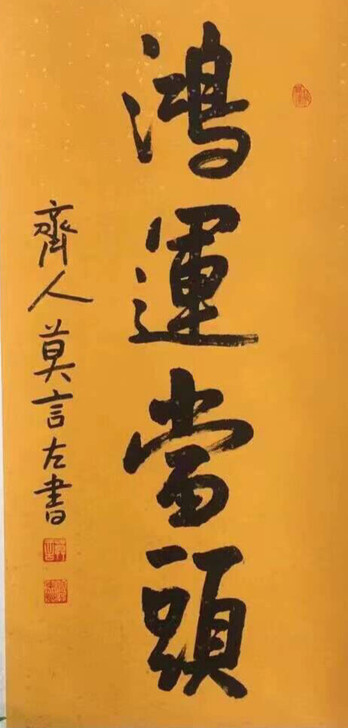 鴻運當頭
齊人莫言左書